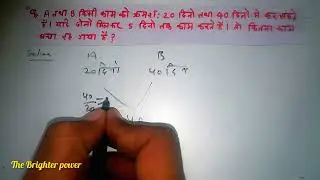 Q. A तथा B किसी काम को क्रमशः 20 दिनों तथा 40 दिनों में कर सकते
हैं। यदि दोनों मिलकर 5 दिनों तक काम करते हैं। तो कितना काम
बचा रह गया है?
A B
20 दिन 40 दिन
40
20
40
The Brighter power